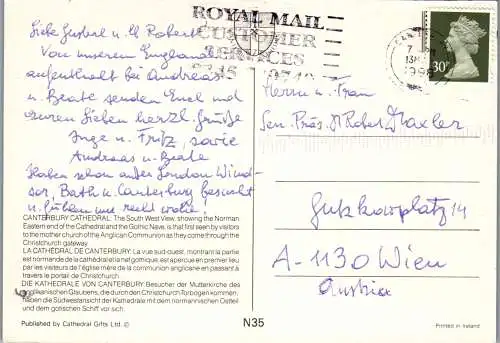 Liebe Gusterl u. ll Robert!
Von unserem England-
aufenthalt bei Andreas
u. Beate senden Euch und
Euren Lieben herzl. Grüße
Inge u. Fritz, sowie
Andreas u. Beate
Haben schon außer London Wind-
sor, Bath u. Canterbury besucht
u. fühlen uns recht wohl!
CANTERBURY CATHEDRAL. The South West View, showing the Norman
Eastern end of the Cathedral and the Gothic Nave, is that first seen by visitors
to the mother church of the Anglican Communion as they come through the
Christchurch gateway.
LA CATHEDRALE DE CANTERBURY. La vue sud-ouest, montrant la partie
est normande de la cathédrale et la nef gothique, est aperçue en premier lieu
par les visiteurs de l'église mère de la communion anglicane en passant à
travers le portail de Christchurch.
DIE KATHEDRALE VON CANTERBURY. Besucher der Mutterkirche des
anglikanischen Glaubens, die durch den Christchurch Torbogen kommen,
haben die Südwestansicht der Kathedrale mit dem normannischen Ostteil
und dem gotischen Schiff vor sich.
Published by Cathedral Gifts Ltd. ©
N35
Printed in Ireland
ROYAL MAIL
CUSTOMER
SERVICES
30
Herrn u. Frau
Sen. Präs. Robert Draxler
Gutzkowplatz 14
A-1130 Wien
Austria